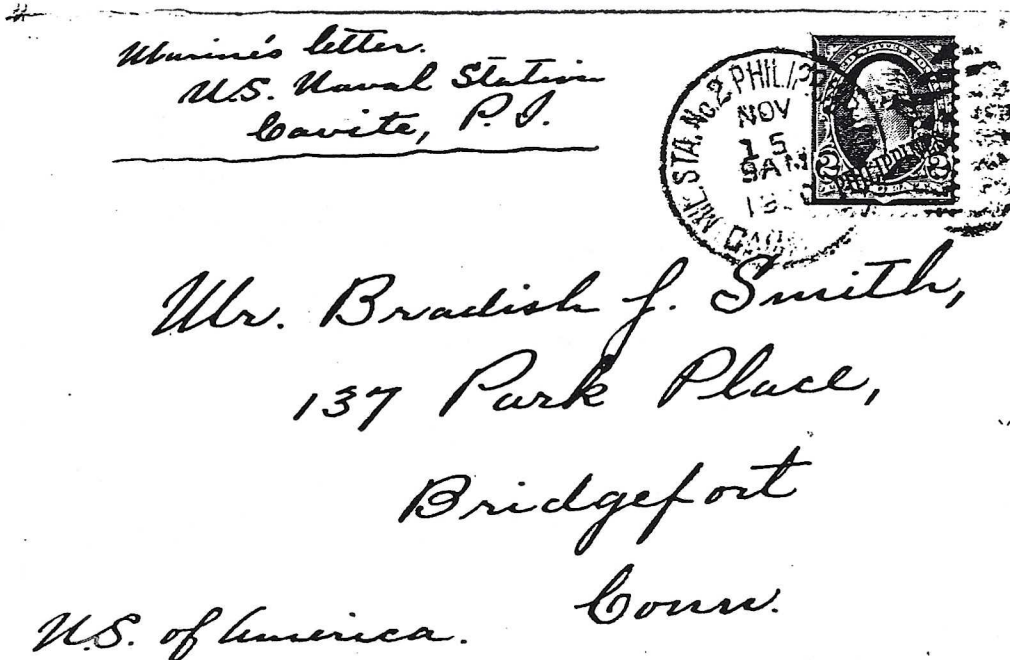 Marine's letter.
U.S. Naval Station
Cavite, P.I.
MIL. STA. No. 2 PHILIPPINE
NOV
15
9AM
2 PHILIPPINES 2
Mr. Bradish J. Smith,
137 Park Place,
Bridgeport
Conn.
U.S. of America.